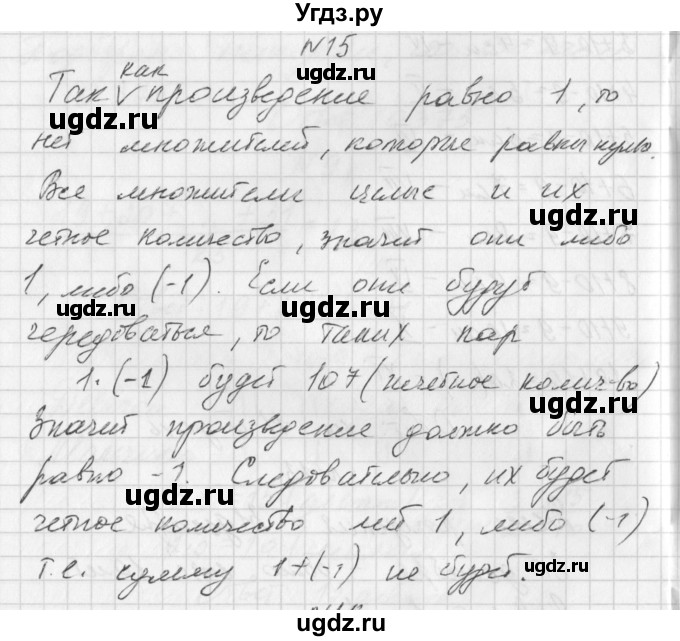 Угдз.ру
N15
как
Так V произведение равно 1, то
нет множителей, которые равны нулю.
Все множители целые и их
четное количество, значит они либо
1, либо (-1). Если они будут
чередоваться, то таких пар
1·(-1) будет 107 (нечетное колич-во)
Значит произведение должно быть
равно -1. Следовательно, их будет
четное количество либо 1, либо (-1)
т.е. сумму 1+(-1) не будет.
ugdz.ru
ugdz.ru
ugdz.ru
ugdz.ru
ugdz.ru
ugdz.ru
ugdz.ru
ugdz.ru
ugdz.ru
ugdz.ru
ugdz.ru
ugdz.ru
ugdz.ru